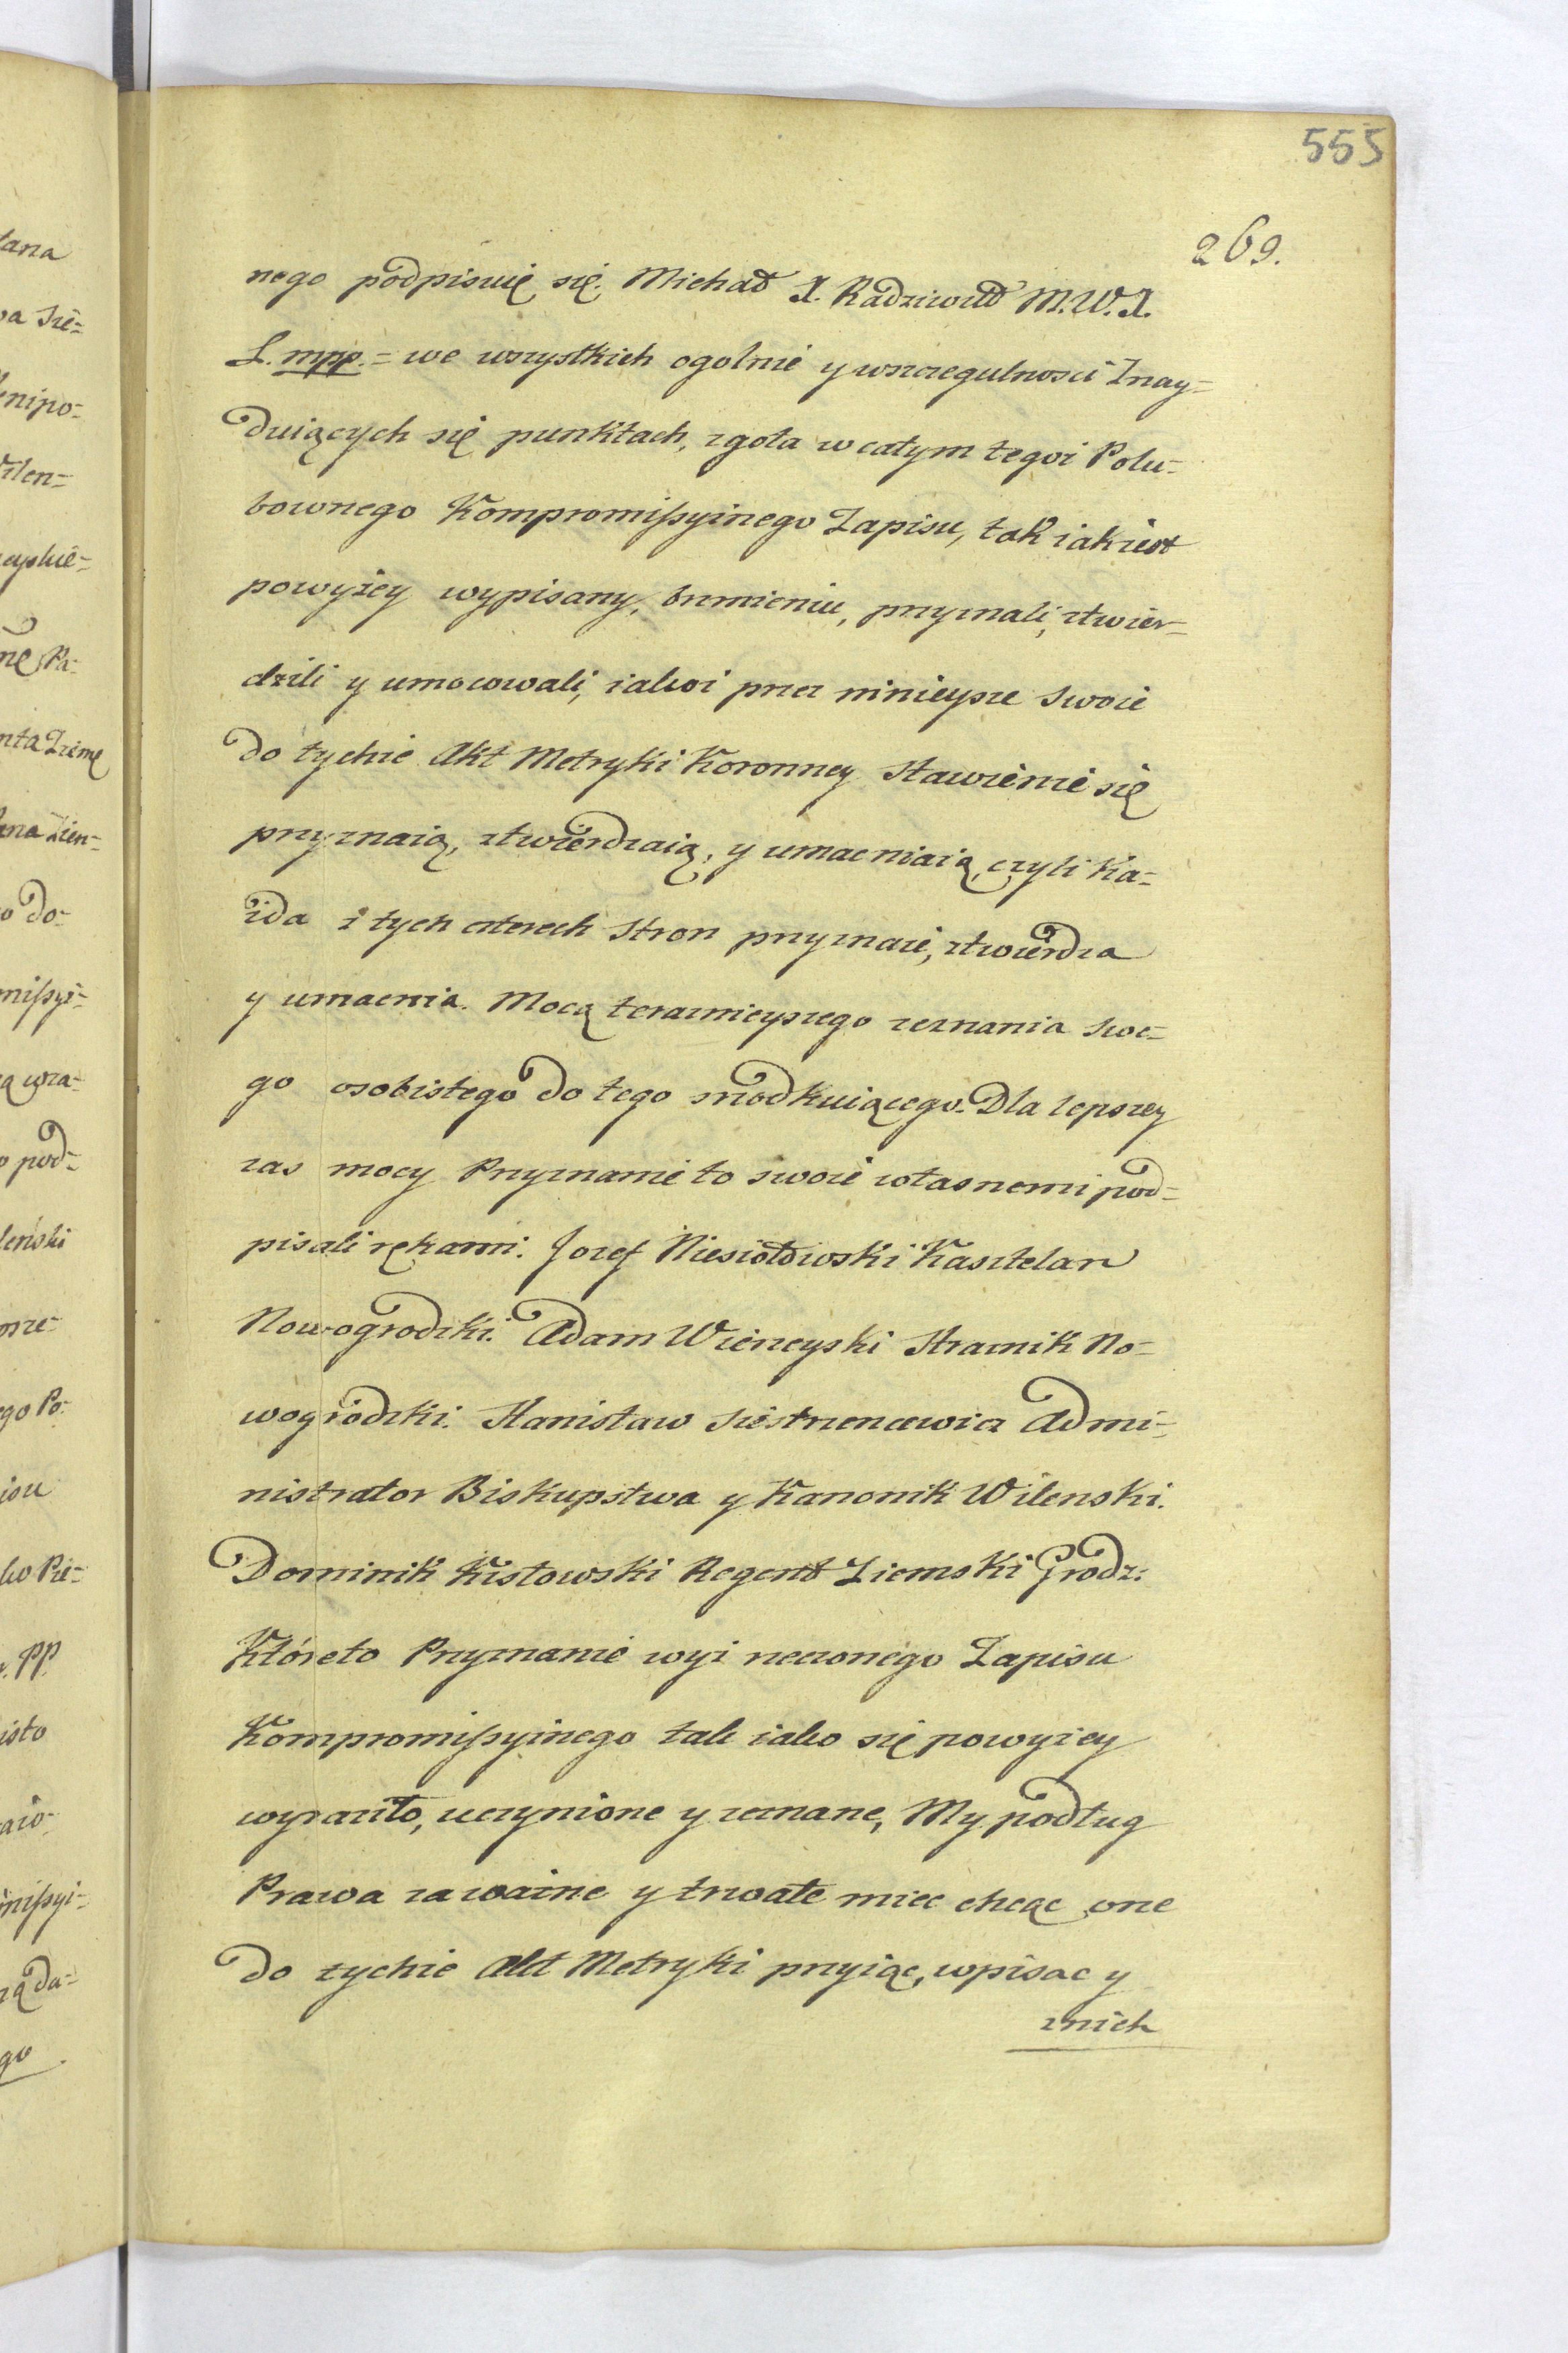 555
269.
nego podpisuię się. Michał X. Radziwiłł M.W.X.
L. mpp. = we wszystkich ogolnie y wszczegulnosci Znay=
duiących się punktach, zgoła w całym tegoż Polu=
bownego Kompromissyinego Zapisu, tak iak iest
powyżey wypisany, brzmieniu, przyznali, ztwier=
dzili y umocowali, iakoż przez ninieysze Swoie
do tychże Akt Metryki Koronney Stawienie się
przyznaią, ztwierdzaią, y umacniaią, czyli Ka=
żda z tych czterech Stron przyznaie, ztwierdza
y umacnia. Mocą teraznieyszego zeznania Swe=
go osobistego do tego srzodkuiącego. Dla lepszey
zas mocy Przyznanie to swoie własnemi pod=
pisali rękami. Jozef Niesiołowski Kasztelan
Nowogrodzki. Adam Wierzeyski Straznik No=
wogrodzki. Stanisław Siestrzencewicz Admi=
nistrator Biskupstwa y Kanonik Wilenski.
Dominik Kisłowski Regent Ziemski Grodz:
Któreto Przyznanie wyż rzeczonego Zapisu
Kompromissyinego tak iako się powyżey
wyraziło, uczynione y zeznane, My podług
Prawa za ważne y trwałe miec chcąc one
do tychże Akt Metryki przyiąc, wpisac y
z nich